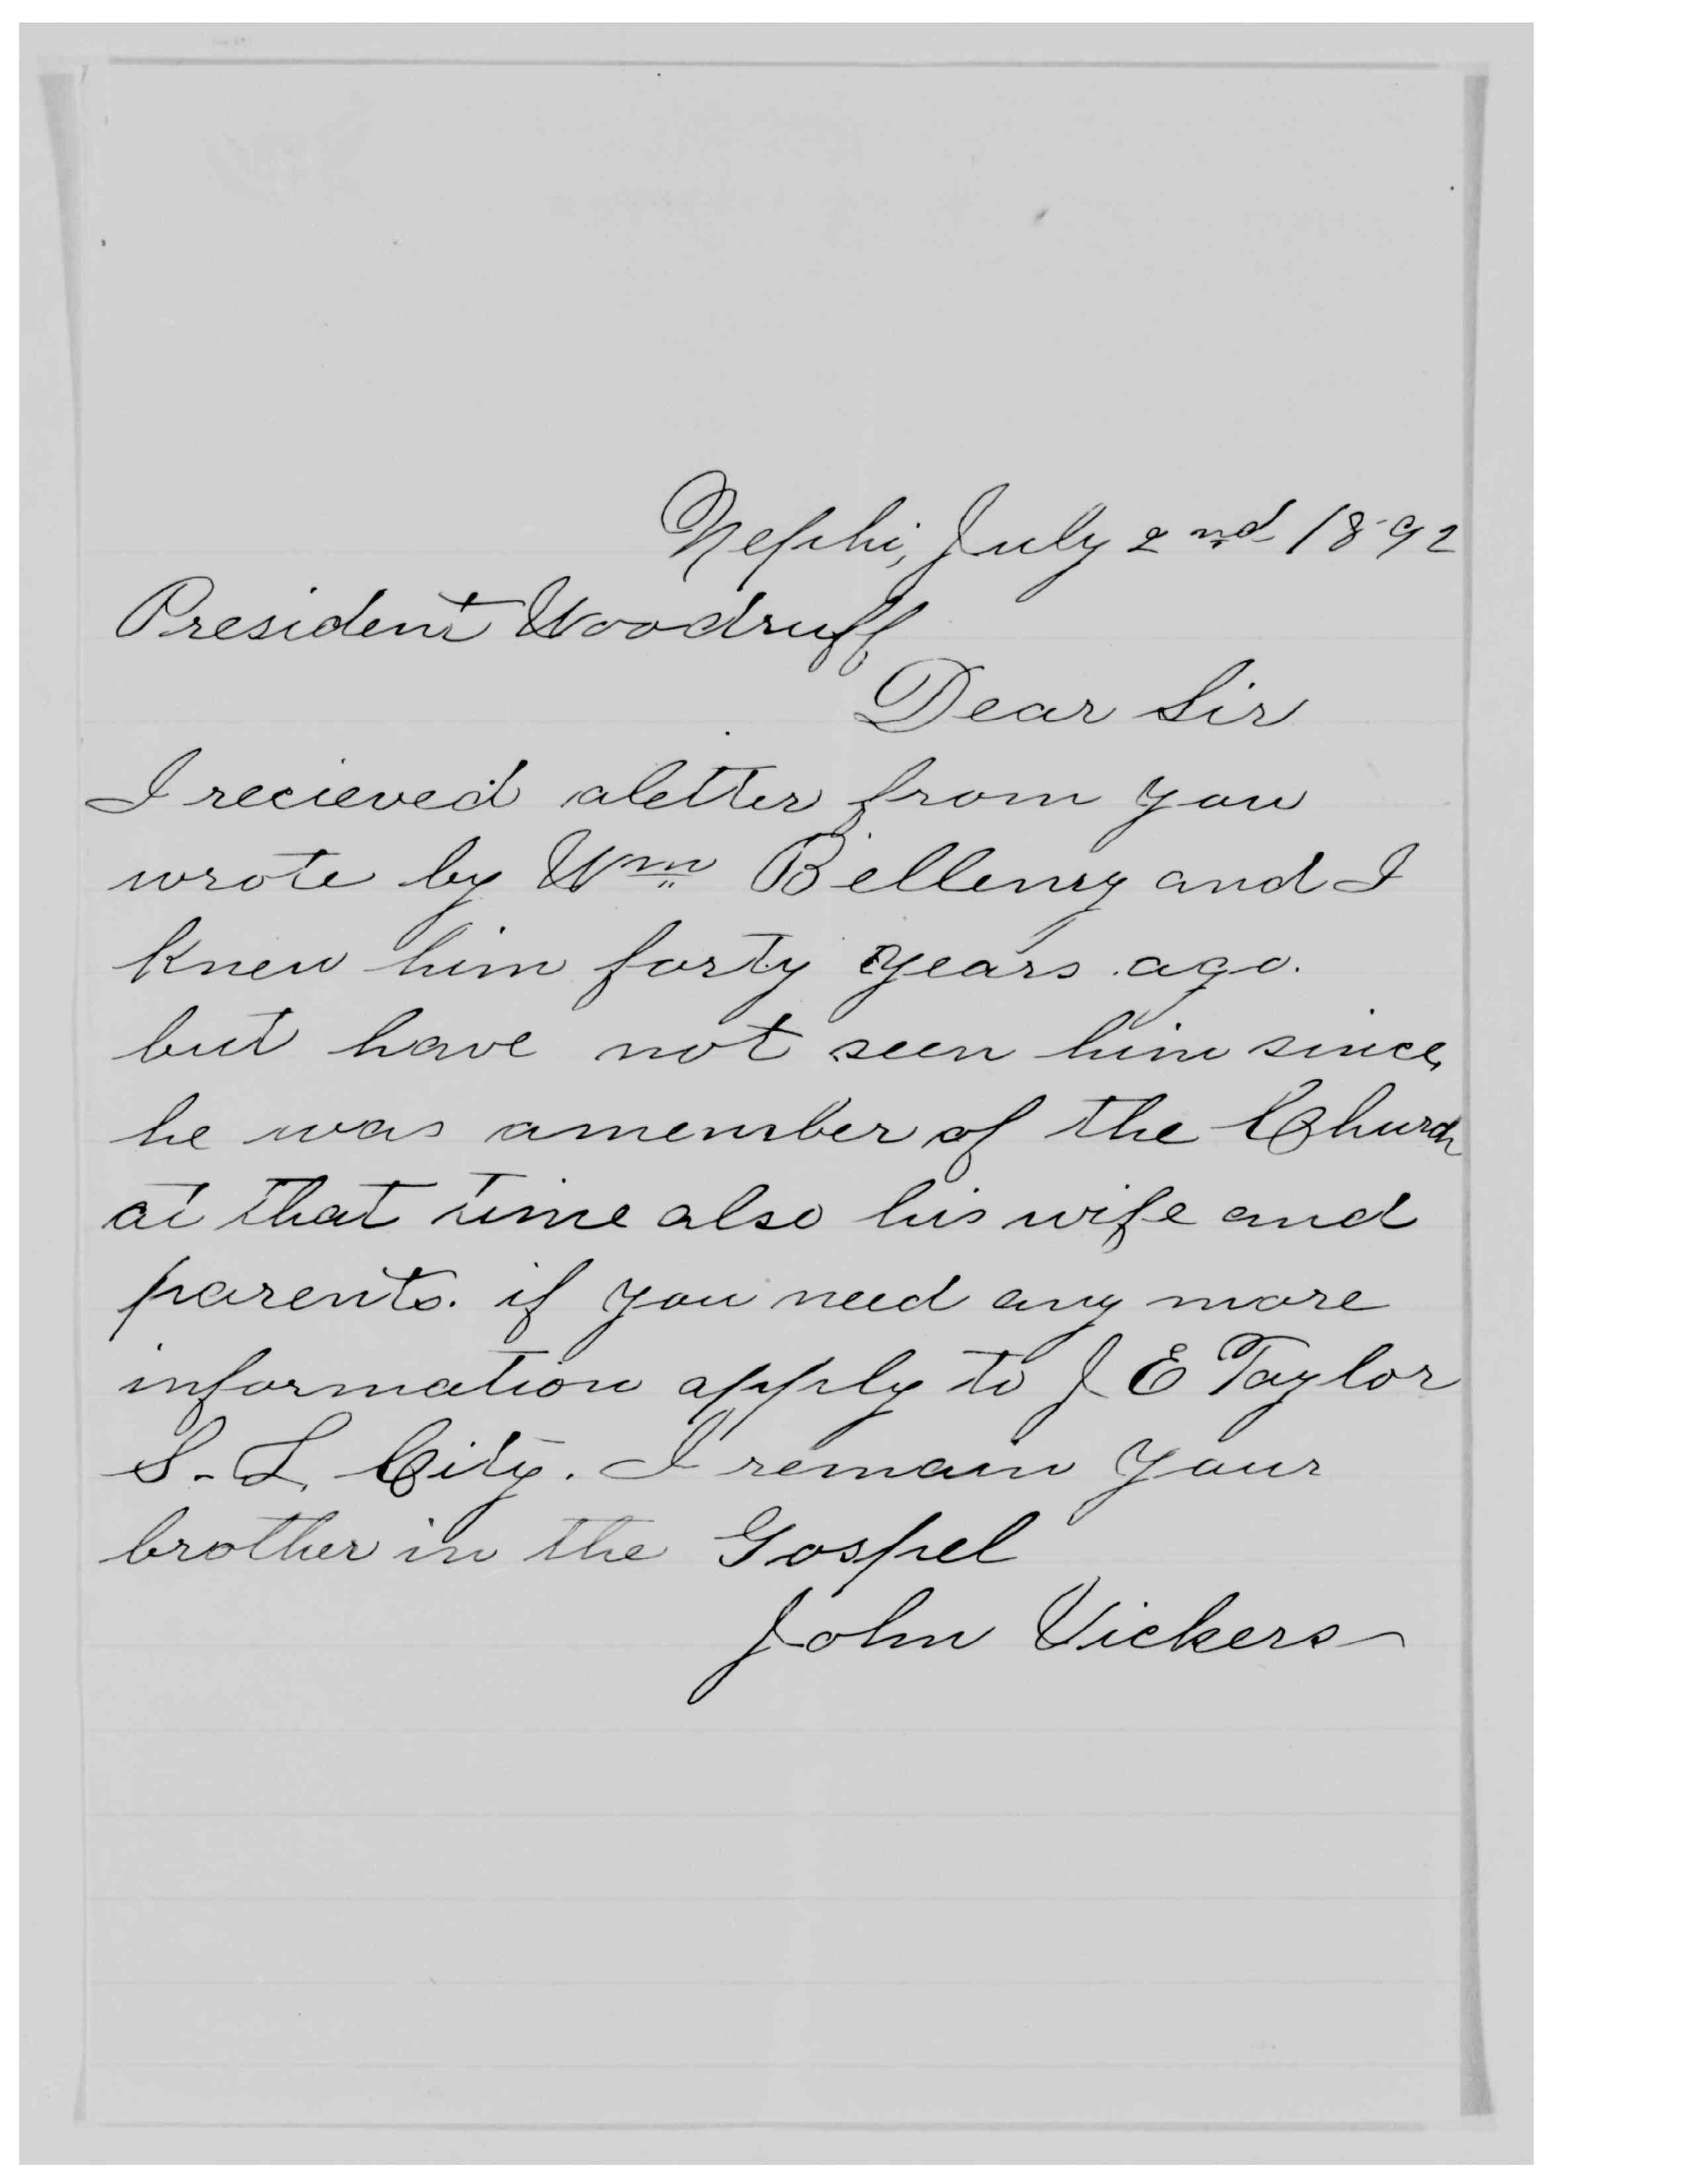 Nephi, July 2nd 1892
President Woodruff
Dear Sir
I recieved a letter from you
wrote by Wm Bellenry and I
knew him forty years ago.
but have not seen him since,
he was a member of the Church
at that time also his wife and
parents. if you need any more
information apply to J E Taylor
S. L. City. I remain your
brother in the Gospel
John Vickers